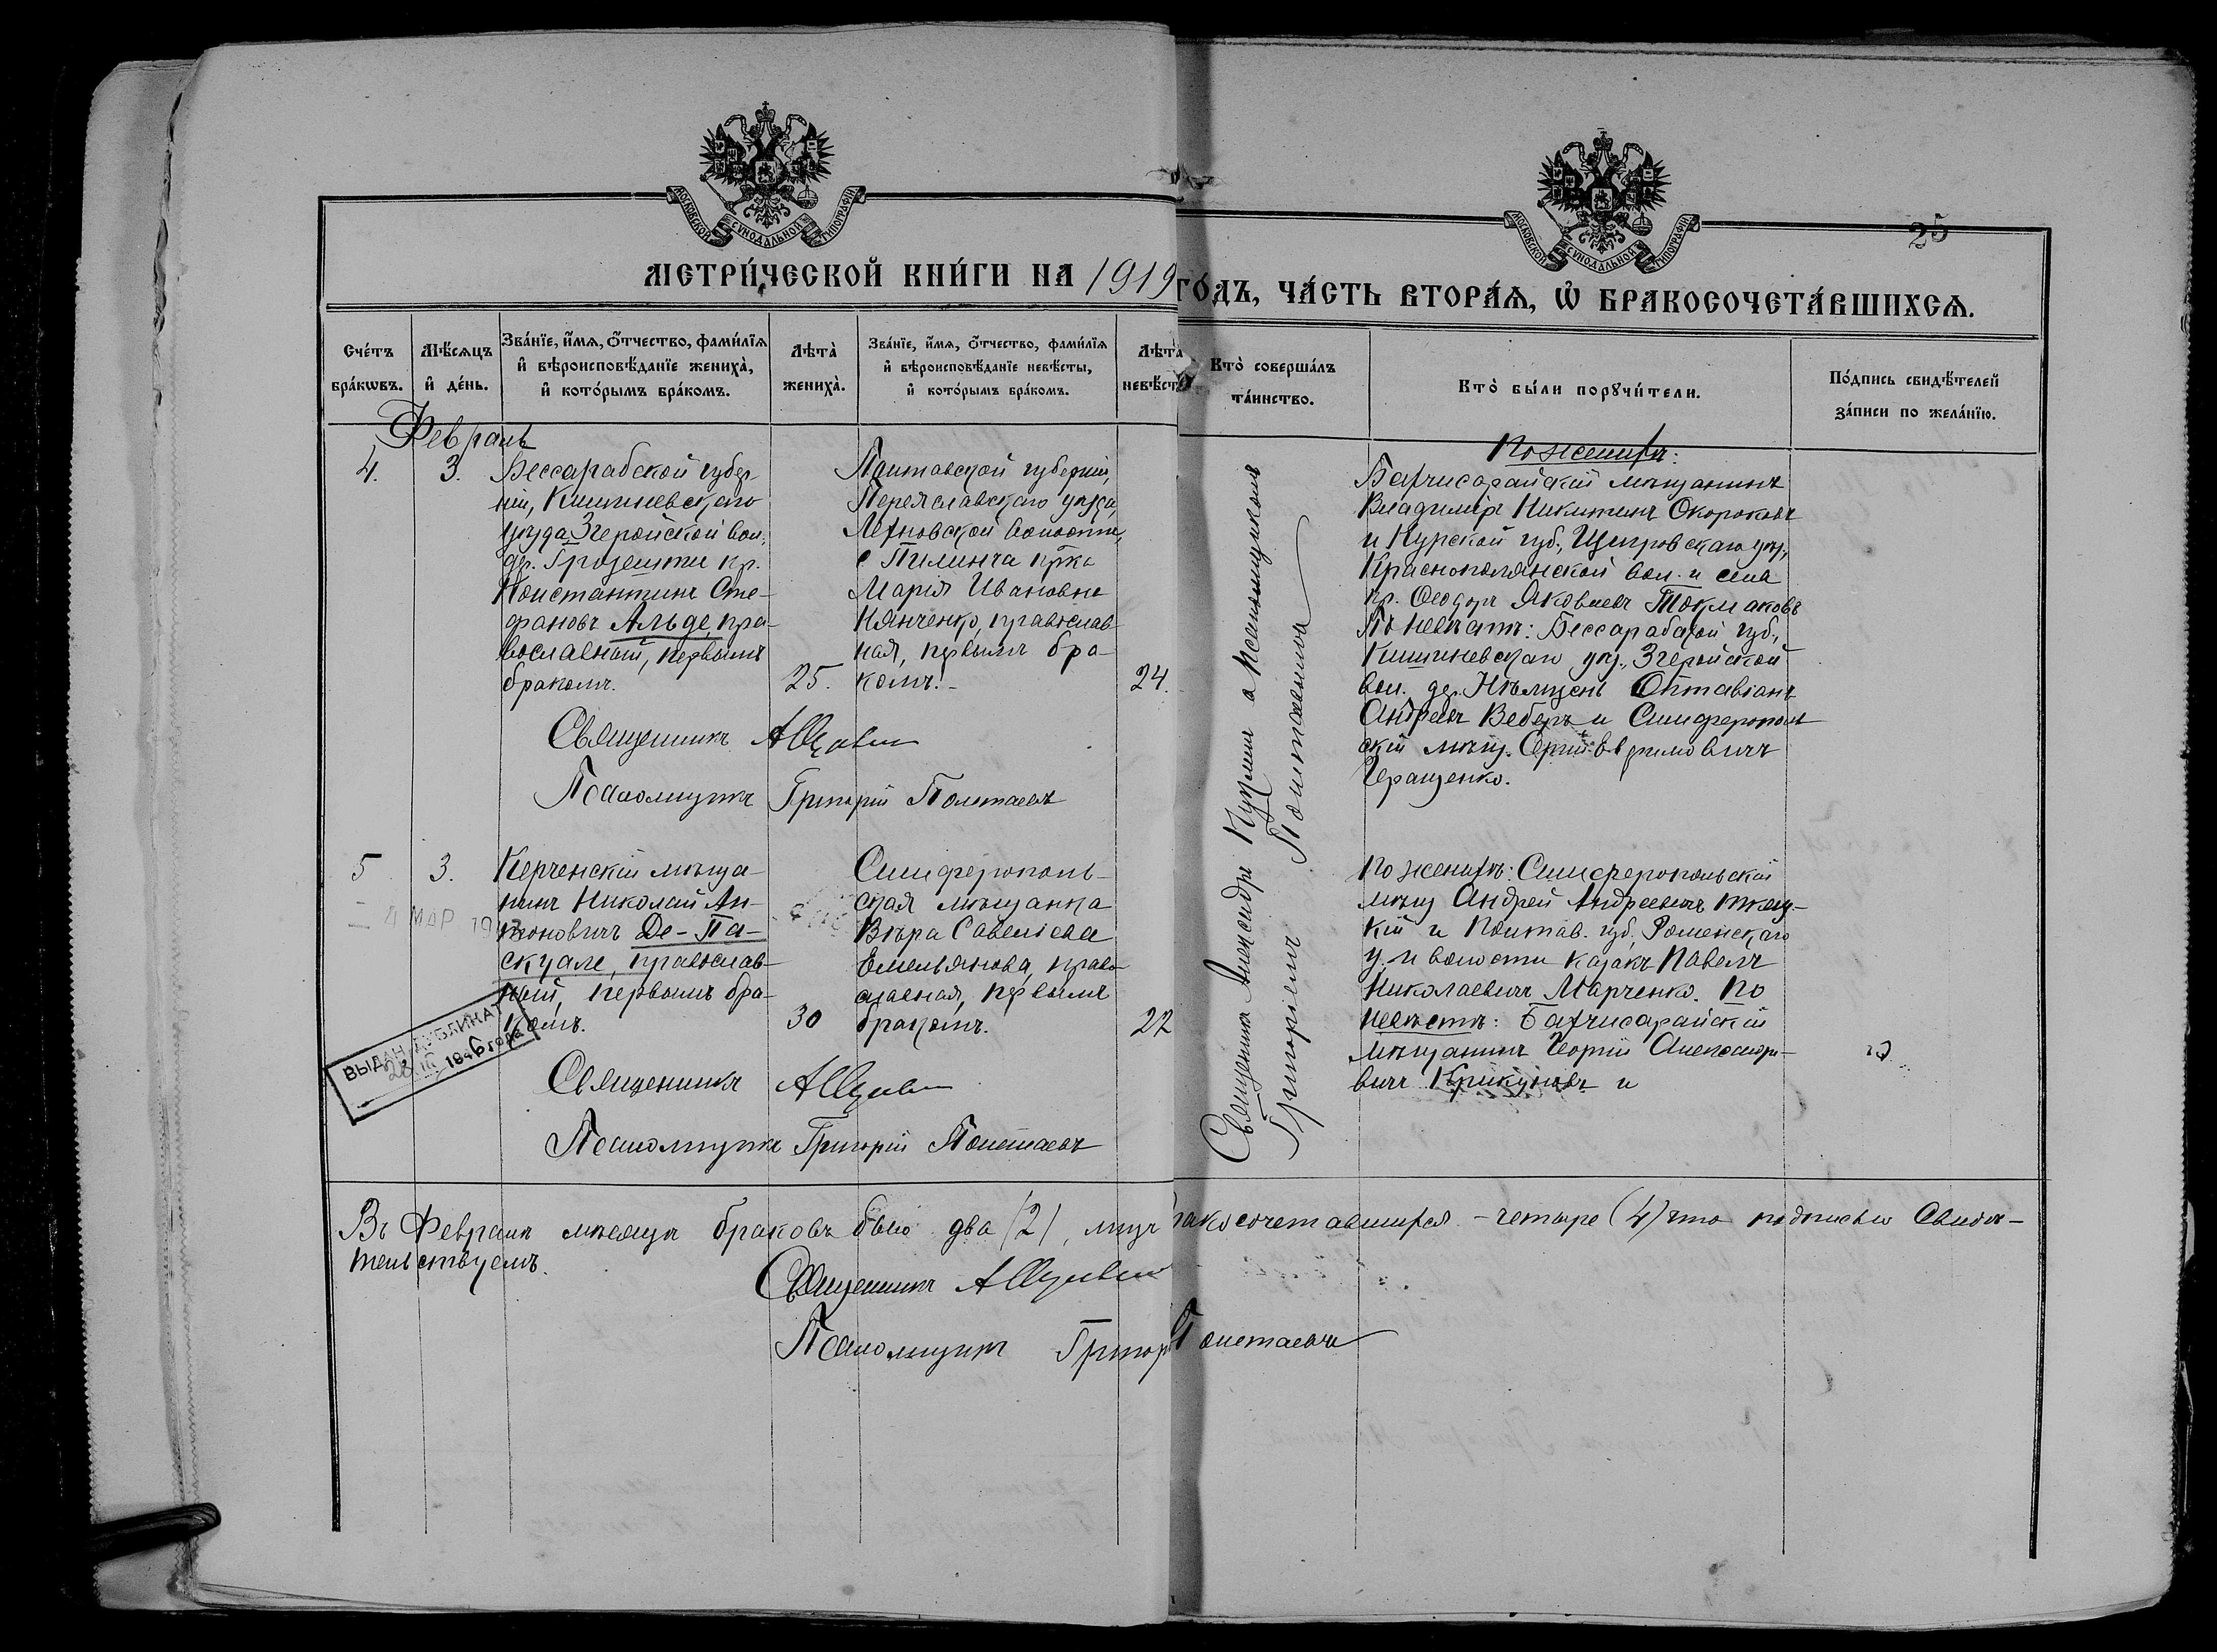 МОСКОВСКОЙ СѴНОДАЛЬНОЙ ТИПОГРАФІИ
МОСКОВСКОЙ СѴНОДАЛЬНОЙ ТИПОГРАФІИ
25
МЕТРИ́ЧЕСКОЙ КНИ́ГИ НА 1919 ГО́ДЪ, ЧА́СТЬ ВТОРА́Ѧ, Ѽ БРАКОСОЧЕТА́ВШИХСѦ.
Сче́тъ бра́кѡвъ.
Мѣ́сѧцъ и҆ де́нь.
Зва́нїе, и҆́мѧ, ѻ҆́тчество, фами́лїѧ
и҆ вѣроисповѣ́данїе жениха̀,
и҆ кото́рымъ бра́комъ.
Лѣта̀ жениха̀.
Зва́нїе, и҆́мѧ, ѻ҆́тчество, фами́лїѧ
и҆ вѣроисповѣ́данїе невѣ́сты,
и҆ кото́рымъ бра́комъ.
Лѣта̀ невѣ́сты
Кто̀ соверша́лъ
та́инство.
Кто̀ бы́ли порꙋчи́тели.
По́дпись свидѣ́телей
за́писи по жела́нїю.
Февраль
4.
3.
Бессарабской губер-
ніи, Кишиневскаго
уѣзда Згерѣйской вол.,
др. Грозешти кр.
Константинъ Сте-
фановъ Альде, пра-
вославный, первымъ
бракомъ.
25.
Полтавской губерніи,
Переяславскаго уѣзда,
волости,
с
Марія Ивановна
Клянченко, православ-
ная, первымъ бра-
комъ.-
24.
Священника Александръ и псаломщикомъ
Григоріемъ Полтаевымъ
По женихѣ:
Бахчисарайскій мѣщанинъ
Владиміръ Никитинъ Окороковъ
и Курской губ., Щигровскаго уѣз.,
Краснополянской вол. и села
кр. Ѳеодоръ Яковлевъ Токмаковъ
По невѣстѣ: Бессарабской губ.,
Кишиневскаго уѣз., Згерѣйской
вол. др. Нѣмцень Октавіанъ
Андреевъ Веберъ и Симферополь
скій мѣщ. Сергій Евфимовичъ
Геращенко.
Священникъ
Псаломщикъ Григорій Полтаевъ
5
3.
Керченскій мѣща-
нинъ Николай Ан-
тоновичъ Де-Па-
скуале, православ-
ный, первымъ бра-
комъ.
30
Симферополь-
ская мѣщанка
Вѣра Савеліева
Емельянова, право-
славная, первымъ
бракомъ.
22
По женихѣ: Симферопольскій
мѣщ Андрей Андреевичъ
кій и Полтав. губ. Роменскаго
у. и волости казакъ Павелъ
Николаевичъ Марченко. По
невѣстѣ: Бахчисарайскій
мѣщанинъ Георгій Александро-
вичъ Крикуновъ и
4 МАР 19
ВЫДАН ДУБЛИКАТ
28 III 1946 года
Священникъ
Псаломщикъ Григорій Полтаевъ
Въ Февралѣ мѣсяцѣ браковъ было два (2), лицъ бракосочетавшихся - четыре (4) что подписью свидѣ-
тельствуемъ.
Священникъ
Псаломщикъ Григор Полтаевъ